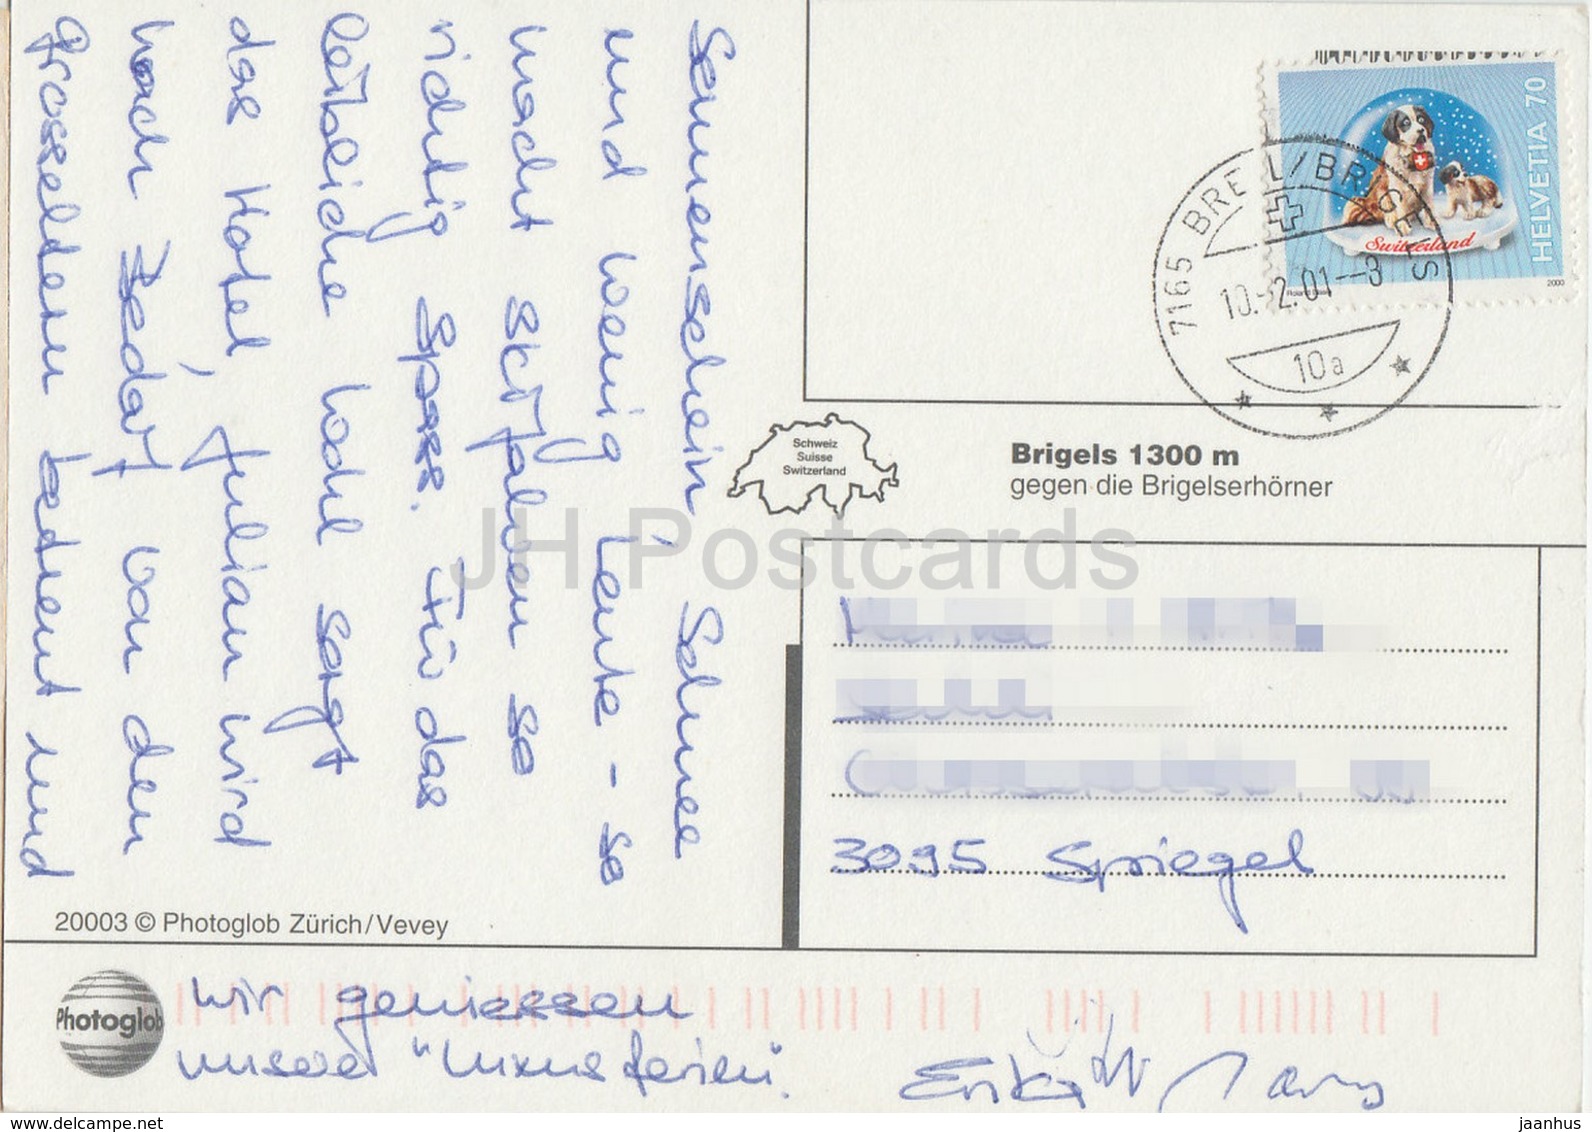 Sonnenschein, Schnee
und wenig Leute - so
macht Skifahren so
richtig Spass. Für das
leibliche Wohl sorgt
das Hotel, Julian wird
nach Bedarf von den
Grosseltern betreut und
wir geniessen
unsere "Luxusferien".
Erika
HELVETIA 70
Switzerland
2000
7165 BREIL/BRIGELS
10.-2.01--3
10a
Schweiz
Suisse
Switzerland
Brigels 1300 m
gegen die Brigelserhörner
JH Postcards
3095 Spiegel
20003 © Photoglob Zürich/Vevey
Photoglob
www.delcampe.net
jaanhus